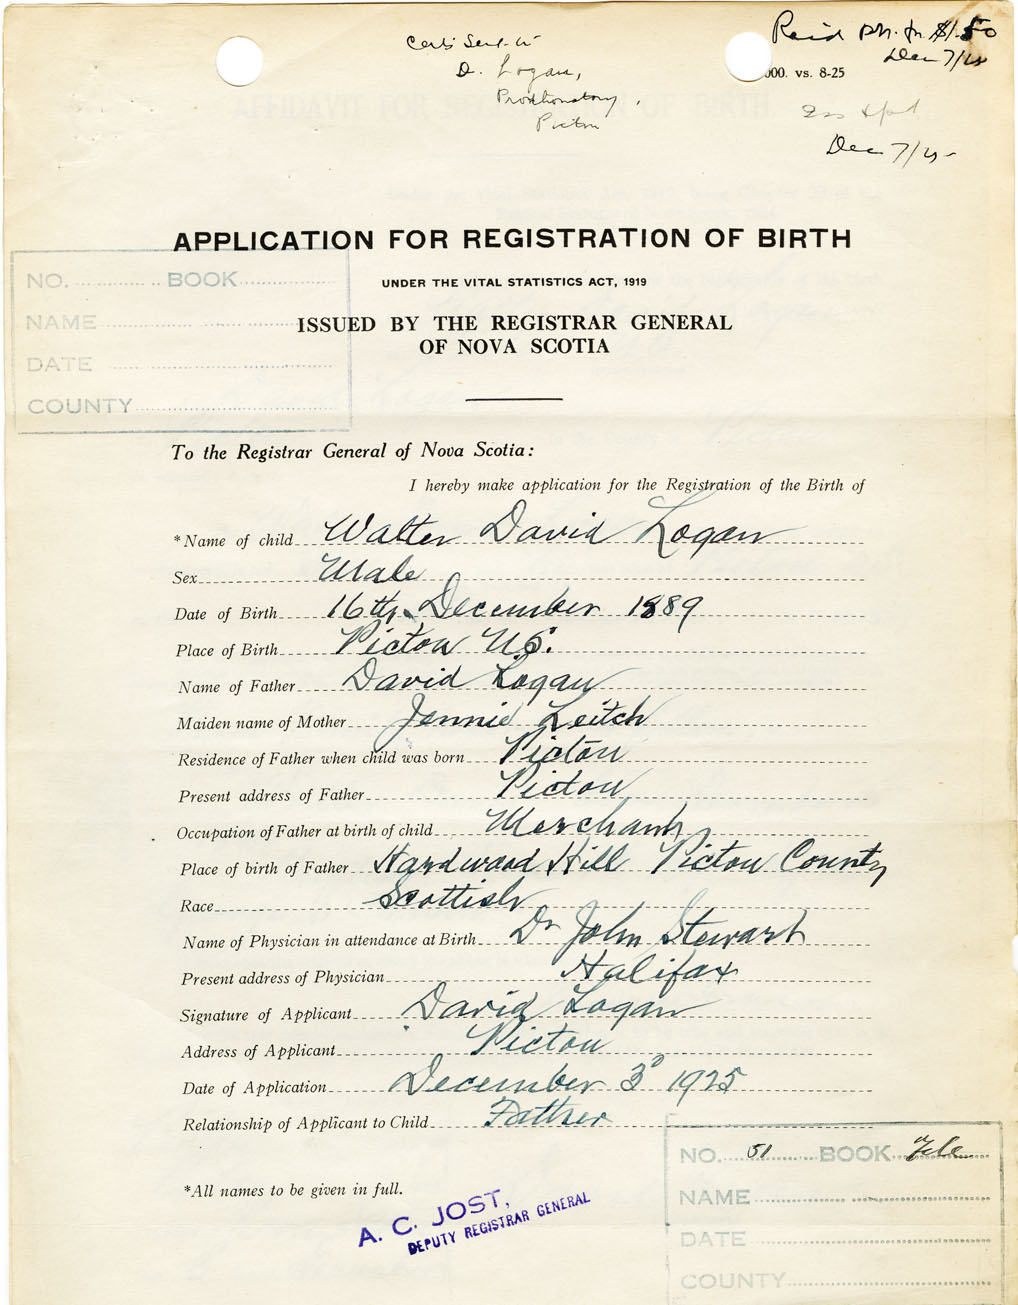 Cert Sent to
D. Logan,
Prothonotary,
Pictou
Paid $1.50
Dec 7/25
000. vs. 8-25
Dec 7/25
APPLICATION FOR REGISTRATION OF BIRTH
UNDER THE VITAL STATISTICS ACT, 1919
ISSUED BY THE REGISTRAR GENERAL
OF NOVA SCOTIA
NO. BOOK
NAME
DATE
COUNTY
To the Registrar General of Nova Scotia:
I hereby make application for the Registration of the Birth of
*Name of child Walter David Logan
Sex Male
Date of Birth 16th December 1889
Place of Birth Pictou N.S.
Name of Father David Logan
Maiden name of Mother Jennie Leitch
Residence of Father when child was born Pictou
Present address of Father Pictou
Occupation of Father at birth of child Merchant
Place of birth of Father Hardwood Hill Pictou County
Race Scottish
Name of Physician in attendance at Birth Dr John Stewart
Present address of Physician Halifax
Signature of Applicant David Logan
Address of Applicant Pictou
Date of Application December 3° 1925
Relationship of Applicant to Child Father
*All names to be given in full.
A. C. JOST,
DEPUTY REGISTRAR GENERAL
NO. 51 BOOK File
NAME
DATE
COUNTY